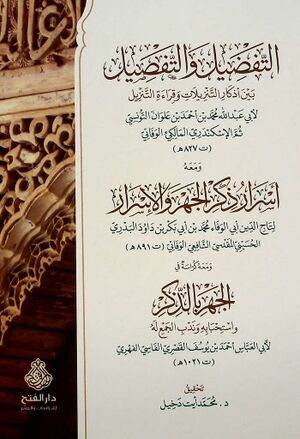 التفصيل والتفضيل
بين أذكار التنزيلات وقراءة التنزيل
لأبي عبد الله محمد بن أحمد بن علوان التونسي
ثم الإسكندري المالكي الوفائي
(ت ٨٢٧هـ)
ومعه
أسرار ذكر الجهر والإسرار
لتاج الدين أبي الوفاء محمد بن أبي بكر بن داود البدري
الحسيني المقدسي الشافعي الوفائي (ت ٨٩١هـ)
ومعه كراسة في
الجهر بالذكر
واستحبابه وندب الجمع له
لأبي العباس أحمد بن يوسف القصري الفاسي الفهري
(ت ١٠٢١هـ)
تحقيق
د. محمد أيت دخيل
دار الفتح
للدراسات والنشر